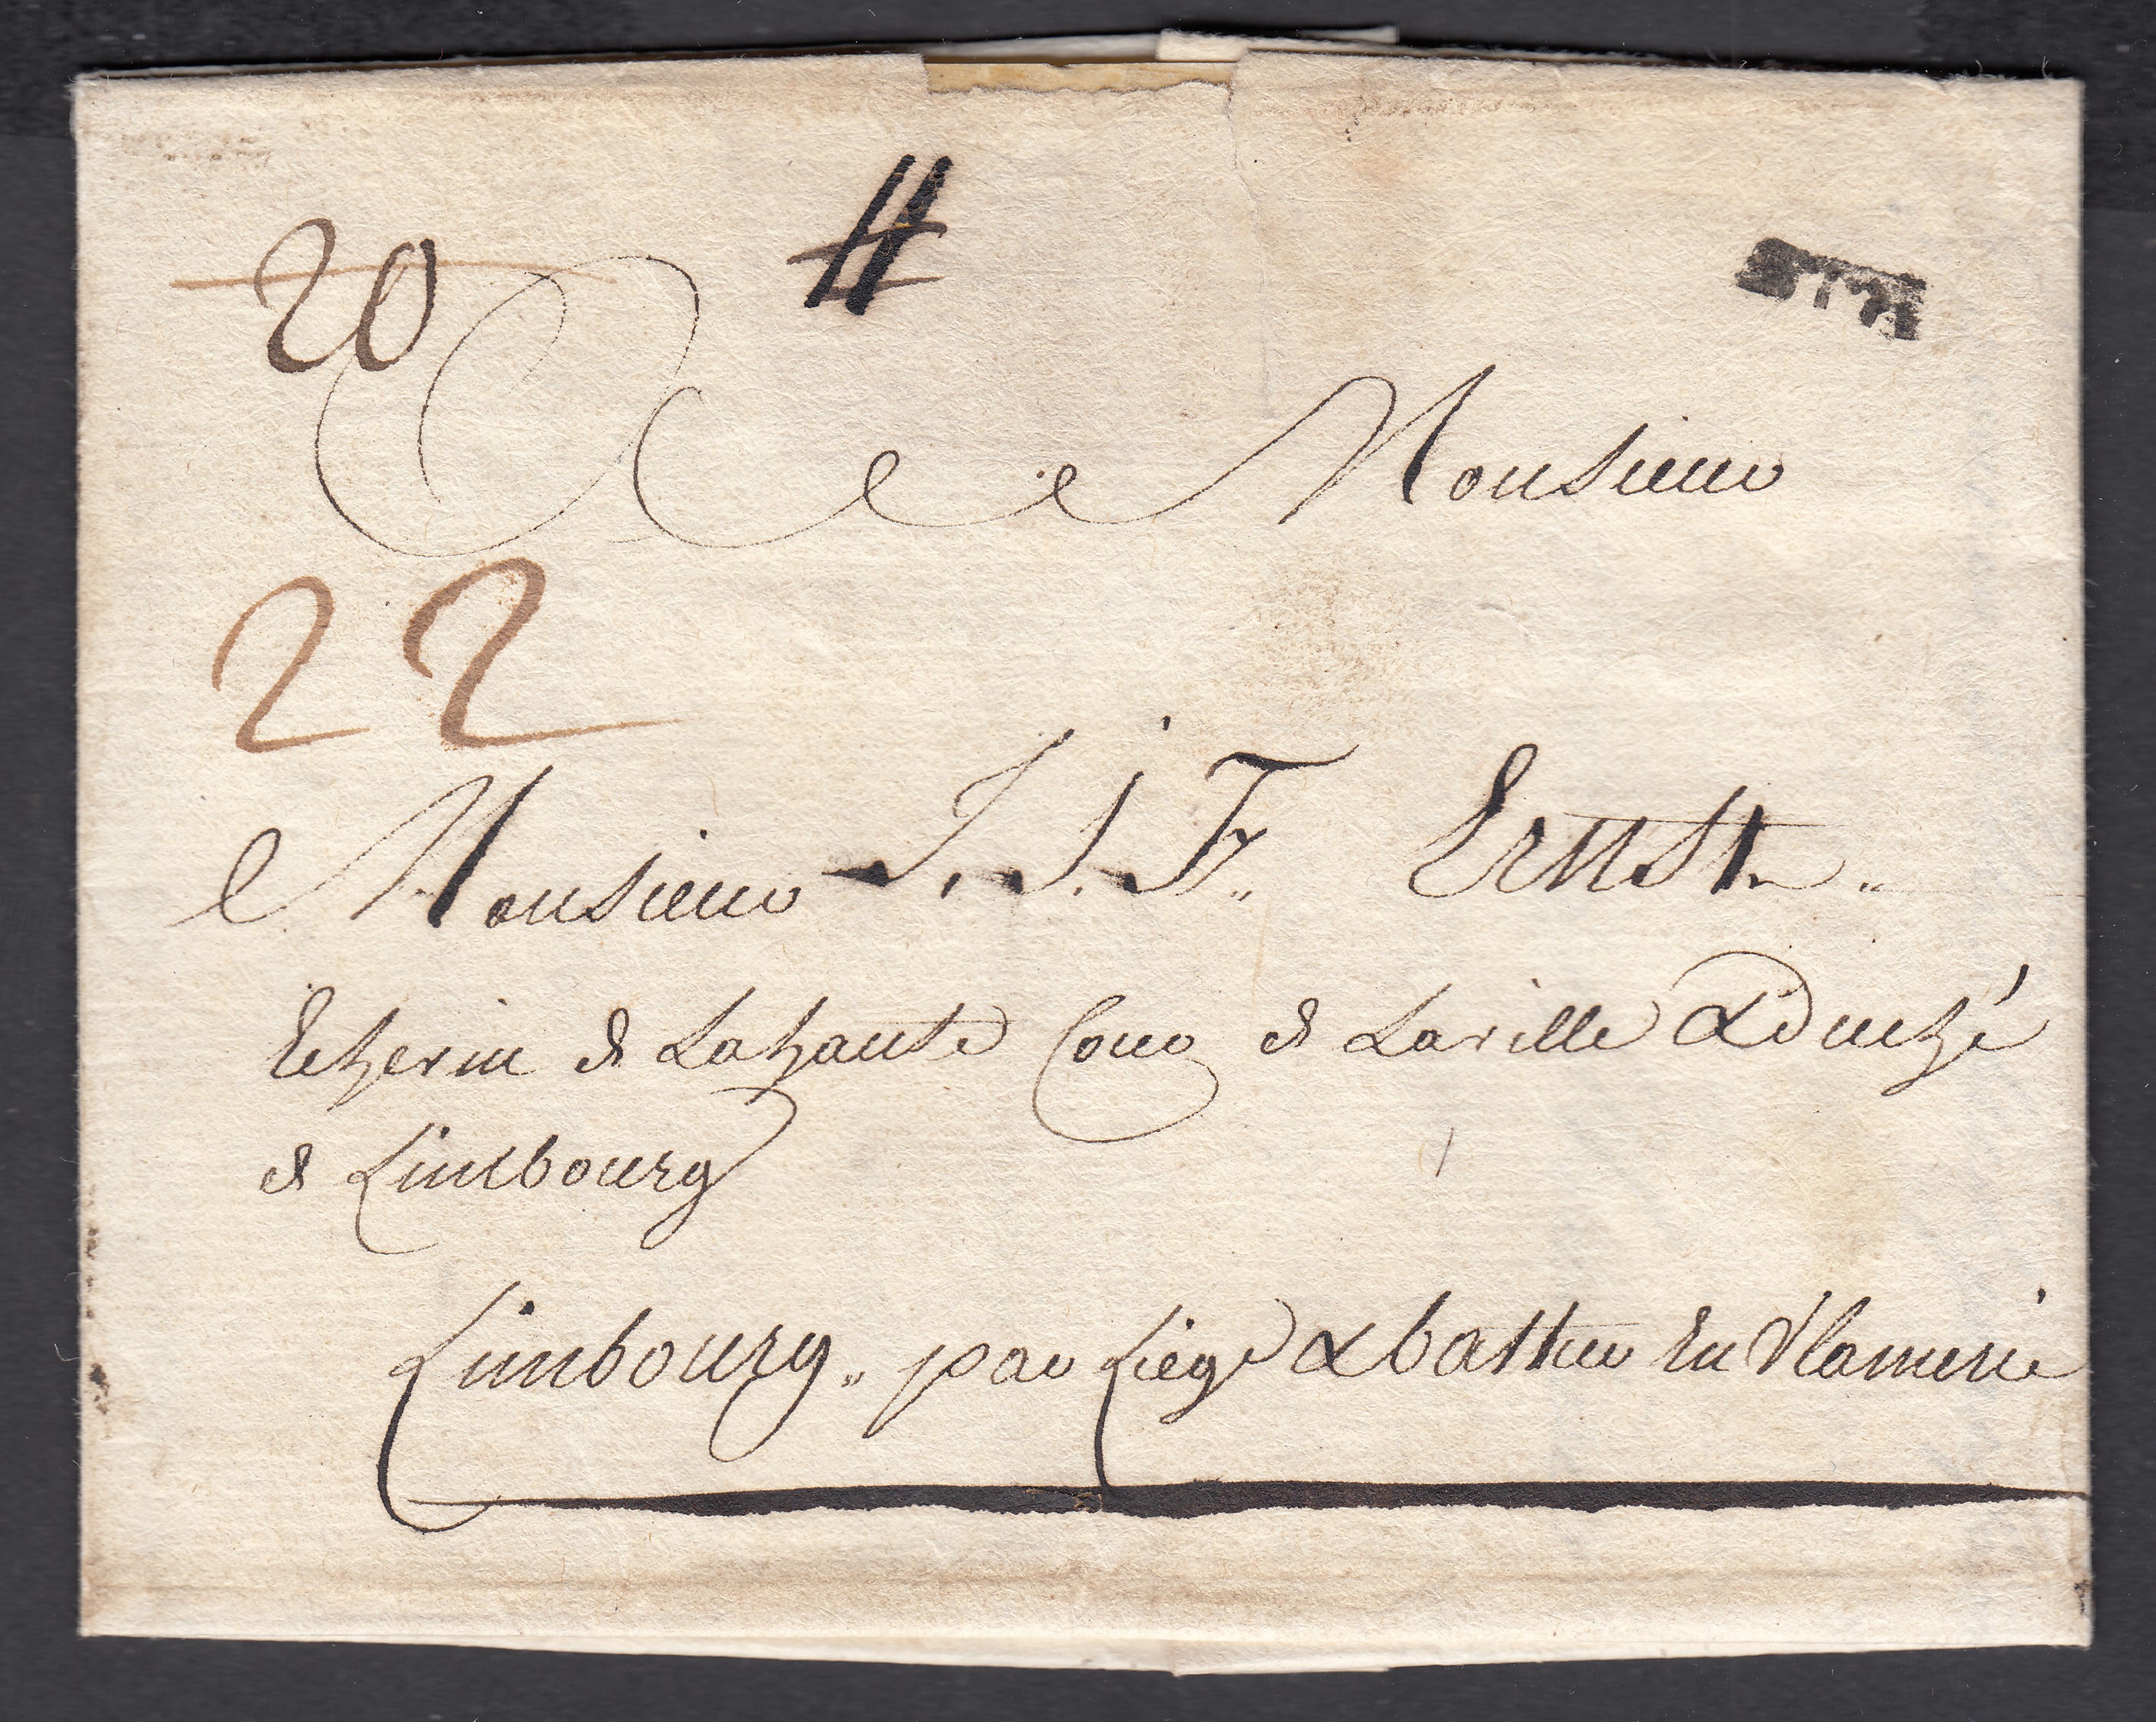 20
A Monsieur
22
Monsieur J. J. F. Ernst
Echevin de La haute Cour de La ville & Duché
de Limbourg
Limbourg. par Liege & battice